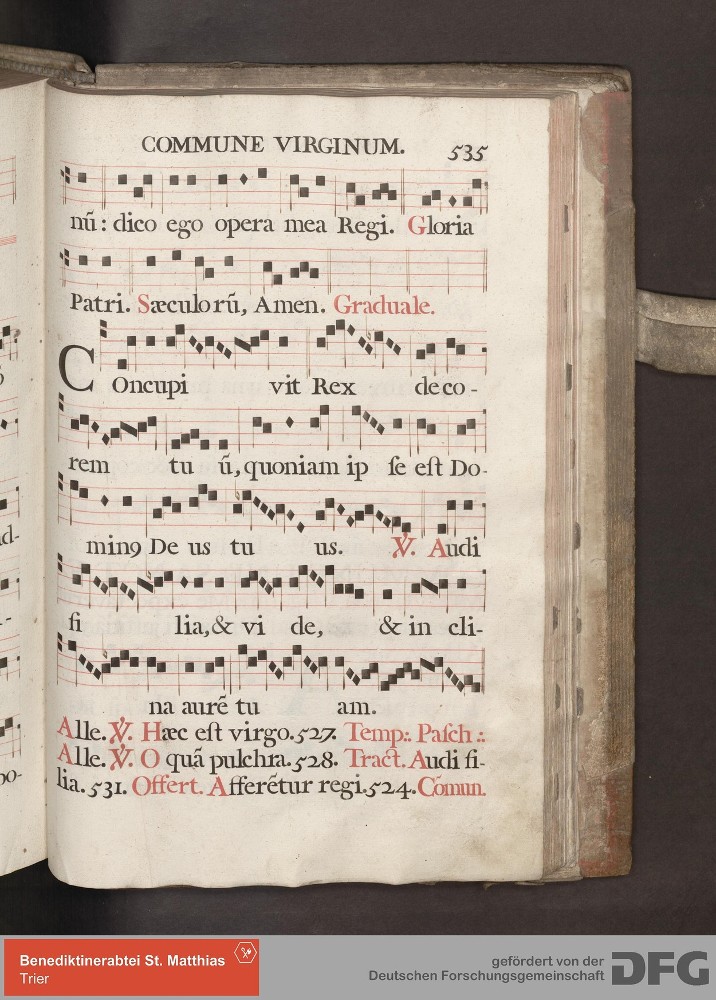 COMMUNE VIRGINUM. 535
nũ: dico ego opera mea Regi. Gloria
Patri. Sæculorũ, Amen. Graduale.
COncupi vit Rex deco-
rem tu ũ, quoniam ip ſe eſt Do-
min9 De us tu us. ℣. Audi
fi lia, & vi de, & in cli-
na aurẽ tu am.
Alle. ℣. Hæc eſt virgo. 527. Temp:. Paſch:.
Alle. ℣. O quã pulchra. 528. Tract. Audi fi-
lia. 531. Offert. Afferẽtur regi. 524. Cõmun.
ad-
Benediktinerabtei St. Matthias
Trier
gefördert von der
Deutschen Forschungsgemeinschaft
DFG